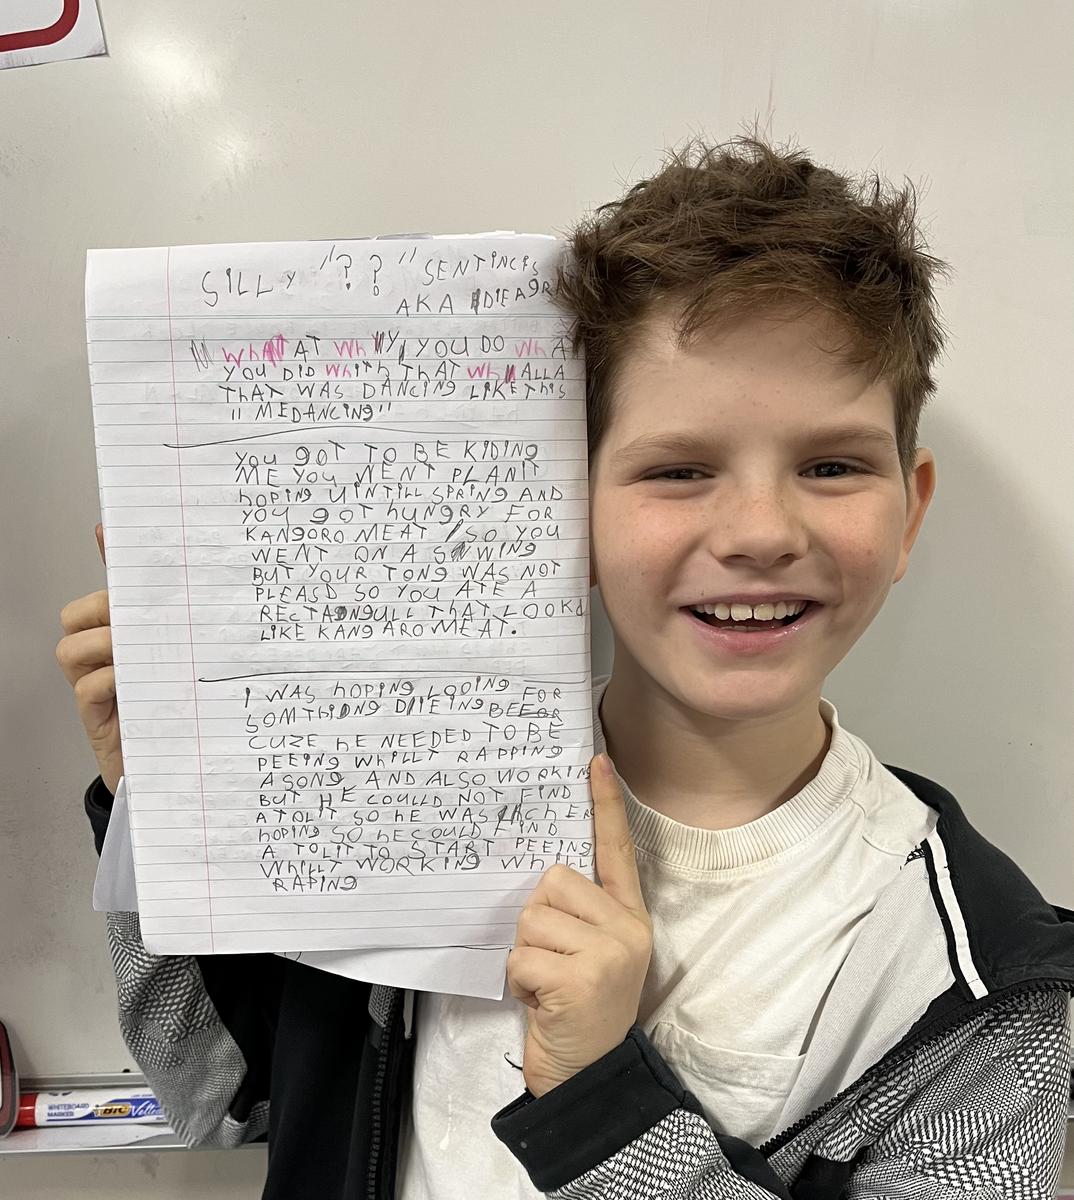 SiLLY "? ?" SENTINCIS
AKA DIEAGR
WhAT AT Wh YOU DO WhA
YOU DID With ThAT Wh ALLA
ThAT WAS DANCiNg LiKE ThiS
"MEDANCiNg"
YOU gOT TO BE KIDiNg
ME YOU WENT PLANiT
hOPiNg UINTiLL SPRiNg AND
YOU gOT hUNgRY FOR
KANgORO MEAT SO YOU
WENT ON A SWING
BUT YOUR TONg WAS NOT
PLEASD SO YOU ATE A
RECTANgULL ThAT LOOKd
LIKE KANgARO MEAT.
I WAS hOPiNg LOOiNg FOR
SOMThiNg DIIEiNg BEE
CUZE hE NEEDED TO BE
PEEiNg WhiLLT RAPPiNg
A SONg AND ALSO WORKiN
BUT HE COULLD NOT FiND
A TOLiT SO hE WAS hER
hOPiNg SO hE COULD FiND
A TOLiT TO START PEEiNg
WhiLLT WORKiNg WhiLL
RAPiNg
WHITEBOARD
MARKER
BIC Velle